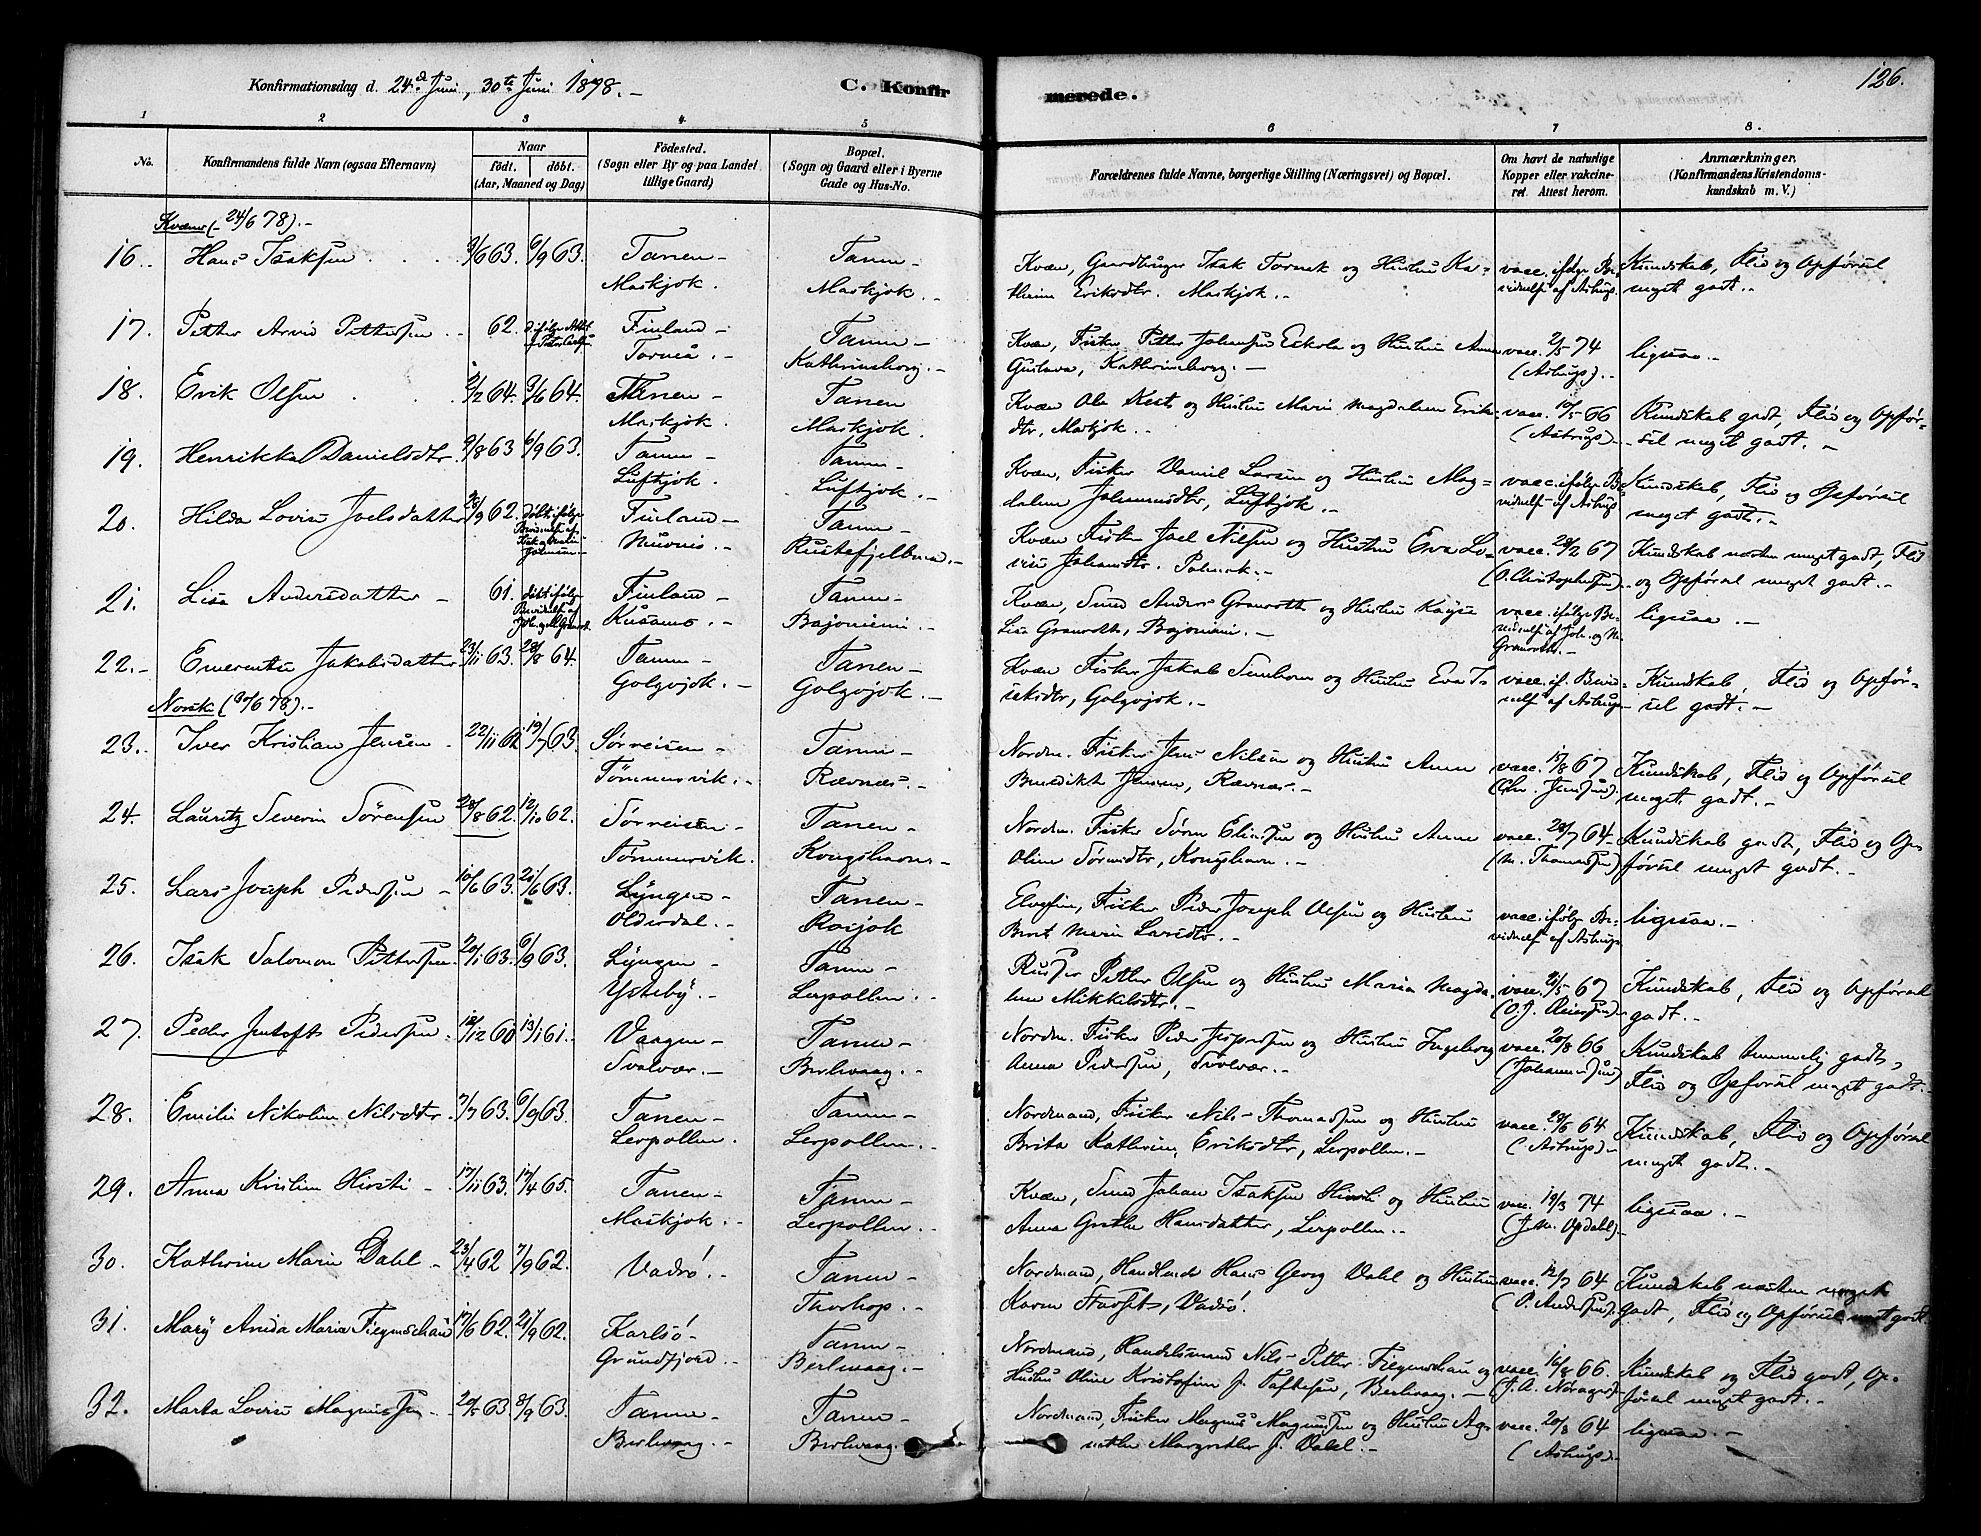 Konfirmationsdag d. 24de Juni, 30te Juni 1878.-
C. Konfirmerede.
126.
1 2 3 4 5 6 7 8.
No.
Konfirmandens fulde Navn (ogsaa Efternavn)
Naar
født. døbt.
(Aar, Maaned og Dag)
Fødested.
(Sogn eller By og paa Landet
tillige Gaard)
Bopæl.
(Sogn og Gaard eller i Byerne
Gade og Hus-No.
Forældrenes fulde Navne, borgerlige Stilling (Næringsvei) og Bopæl.
Om havt de naturlige
Kopper eller vakcine-
ret. Attest herom.
Anmærkninger,
(Konfirmandens Kristendoms-
kundskab m. V.)
Kvæner (24/6 78).-
16. Hans Isaksen 9/6 63. 6/9 63. Tanen- Maskjok. Tanen- Maskjok.- Kvæn, Gaardbruger Isak Tornek og Hustru Ka-
thrine Eriksdtr. Maskjok.- vacc. ifølge Be-
vidnelse af Astrup. Kundskab, Flid og Opførsel
meget godt.-
17. Petter Arvid Pettersen 62. Finland- Torneå.- Tanen- Kathrineborg.- Kvæn, Fisker Petter Johansen Eskola og Hustru Anna
Gustava, Kathrineborg.- vacc. 2/5 74
(Astrup).- ligesaa.-
18. Erik Olsen 2/2 64. 3/6 64. Tanen- Maskjok. Tanen Maskjok. Kvæn Ole Kest og Hustru Maria Magdalena Eriks-
dtr, Maskjok.- vacc. 19/5 66
(Astrup)- Kundskab godt, Flid og Opfør-
sel meget godt.-
19. Henrikka Danielsdtr. 9/8 63 6/9 63. Tanen- Luftjok. Tanen- Luftjok.- Kvæn, Fisker Daniel Larsen og Hustru Mag-
dalena Johannesdtr, Luftjok.- vacc. ifølge Be-
vidnelse af Astrup Kundskab, Flid og Opførsel
meget godt.-
20. Hilda Lovise Joelsdatter 28/9 62. Finland- Muonio.- Tanen- Rustefjelbma.- Kvæn Fisker Joel Nilsen og Hustru Eva Lo-
vise Johansdtr. Polmak.- vacc. 28/2 67
(O. Christophersen).- Kundskab næsten meget godt, Flid
og Opførsel meget godt.-
21. Lisa Andersdatter- 61. Finland- Kusamo.- Tanen- Bajoniemi.- Kvæn, Smed Anders Granroth og Hustru Kaysa
Lisa Granroth, Bajoniemi.- vacc. ifølge Be-
vidnelse af Joh. og M.
Granroth.- ligesaa.-
22.- Emerentse Jakobsdatter 23/11 63. 28/8 64. Tanen- Golgojok.- Tanen- Golgojok.- Kvæn Fisker Jakob Sunhom og Hustru Eva I-
saksdtr, Golgojok.- vacc. if. Bevid-
nelse af Astrup- Kundskab, Flid og Opfør-
sel godt.-
Norsk (30/6 78).-
23. Iver Kristian Jensen 22/11 62 19/7 63. Sørreisen- Tømmervik.- Tanen- Rævnæs.- Nordm. Fisker Jens Nilsen og Hustru Anne
Benedikte Jensen, Rævnæs.- vacc. 15/8 67
(Chr. Jensen). Kundskab, Flid og Opførsel
meget godt.-
24. Lauritz Severin Sørensen 28/8 62. 12/10 62. Sørreisen- Tømmervik. Tanen- Kongshavn- Nordm. Fisker Søren Eliassen og Hustru Anne
Oline Sørensdtr, Kongshavn.- vacc. 28/7 64-
(M. Thomassen) Kundskab godt, Flid og Op-
førsel meget godt.-
25. Lars Joseph Pedersen- 10/6 63. 21/6 63. Lyngen- Olderdal.- Tanen- Roijok Elvefin, Fisker Peder Joseph Olsen og Hustru
Berit Maria Larsdtr.- vacc. ifølge Be-
vidnelse af Astrup ligesaa.-
26. Isak Salomon Pettersen. 20/1 63. 6/9 63. Lyngen- Ysteby.- Tanen- Lerpollen.- Petter Olsen og Hustru Maria Magda-
lena Mikkelsdtr.- vacc. 21/5 67
(O. J. Reiersen). Kundskab, Flid og Opførsel
godt.-
27. Peder Jentoft Pedersen 18/12 60 13/1 61. Vaagen- Svolvær.- Tanen- Berlevaag.- Nordm. Fisker Peder Jespersen og Hustru Ingeborg
Anna Pedersen, Svolvær.- vacc. 20/8 66
(Johannesen) Kundskab temmelig godt,
Flid og Opførsel meget godt.
28. Emilie Nikoline Nilsdtr 7/7 63. 6/9 63. Tanen- Lerpollen. Tanen- Lerpollen. Nordmand, Fisker Nils Thomassen og Hustru
Brita Kathrine Eriksdtr, Lerpollen.- vacc. 28/6 64
(Astrup)- Kundskab, Flid og Opførsel
meget godt.-
29. Anna Kristine Hirsti- 17/11 63. 17/4 65. Tanen- Maskjok.- Tanen- Lerpollen.- Kvæn, Smed Johan Isaksen Hirsti og Hustru
Anna Grethe Hansdatter, Lerpollen.- vacc. 19/3 74
(J. M. Opdahl)- ligesaa.-
30. Kathrine Marie Dahl- 23/4 62 7/9 62. Vadsø.- Tanen- Thorhop.- Nordmand, Handlende Hans Georg Dahl og Hustru
Karen Vadsø. vacc. 12/7 64
(O. Andersen). Kundskab næsten meget
godt, Flid og Opførsel meget godt.
31. Mary Anida Maria Figenschau 17/6 62. 21/9 62. Karlsø- Grundfjord.- Tanen- Berlevaag.- Nordmand, Handelsmand Nils Petter Figenschau og
Hustru Oline Kristofine J. Toftesen, Berlevaag.- vacc. 16/8 66.
(J. A. Norager). Kundskab og Flid godt, Op-
førsel meget godt.-
32. Marta Lovise Magnussen- 20/5 63 6/9 63. Tanen- Berlevaag.- Tanen- Berlevaag. Nordmand, Fisker Magnus Magnussen og Hustru Ag-
nethe Margrethe J. Dahl.- vacc. 20/8 64
(Astrup).- ligesaa.-